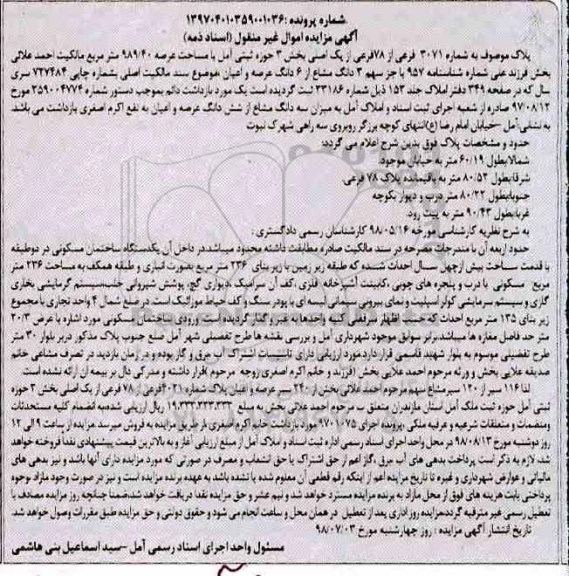 شماره پرونده :۱۳۹۷۰۴۰۱۰۳۵۹۰۰۱۰۳۶
آگهی مزایده اموال غیر منقول (اسناد ذمه)
پلاک موصوف به شماره ۳۰۷۱ فرعی از ۷۸فرعی از یک اصلی بخش ۳ حوزه ثبتی آمل با مساحت عرصه ۹۸۹/۴۰ متر مربع مالکیت احمد علائی
بخش فرزند علی شماره شناسنامه ۹۵۷ با جز سهم ۳ دانگ مشاع از ۶ دانگ عرصه و اعیان ،موضوع سند مالکیت اصلی بشماره چاپی ۷۲۷۴۸۴ سری
سال که در صفحه ۳۴۹ دفتر املاک جلد ۱۵۳ ذیل شماره ۲۳۱۸۶ ثبت گردیده است یک مورد بازداشت دائم بموجب دستور شماره ۲۵۹۰۰۴۷۷۴ مورخ
۹۷/۰۸/۱۲ صادره از شعبه اجرای ثبت اسناد و املاک آمل به میزان سه دانگ مشاع از شش دانگ عرصه و اعیان به نفع اکرم اصغری بازداشت می باشد.
به نشانی:آمل -خیابان امام رضا (ع)انتهای کوچه برزگر روبروی سه راهی شهرک نبوت
حدود و مشخصات پلاک فوق بدین شرح اعلام می گردد:
شمالا:بطول ۶۰/۱۹ متر به خیابان موجود.
شرقا:بطول ۸۰/۵۲ متر به باقیمانده پلاک ۷۸ فرعی
جنوبا:بطول ۸۰/۲۲ متر درب و دیوار بکوچه
غربا:بطول ۹۰/۴۳ متر به پشت رود.
به شرح نظریه کارشناسی مورخه ۹۸/۰۵/۱۶ کارشناسان رسمی دادگستری :
حدود اربعه آن با مندرجات مصرحه در سند مالکیت صادره مطابقت داشته محدود میباشد.در داخل آن یکدستگاه ساختمان مسکونی در دوطبقه
با قدمت ساخت بیش ازچهل سال احداث شده که طبقه زیر زمین با زیر بنای ۲۳۶ متر مربع بصورت انباری و طبقه همکف به مساحت ۲۳۶ متر
مربع مسکونی با درب و پنجره های چوبی ،کابینت آشپزخانه فلزی ،کف آن سرامیک ،دیواری گچ، پوشش شیروانی حلب،سیستم گرمایشی بخاری
گازی و سیستم سرمایشی کولر اسپلیت و نمای بیرونی سیمانی لیسه ای با پودر سنگ و کف حیاط موزائیک است. در ضلع شمال ۴ واحد تجاری با مجموع
زیر بنای ۱۳۵ متر مربع احداث که حسب اظهار کلیه واحدها به غیر واگذار گردیده است.ورودی ساختمان مسکونی مورد اشاره با عرض ۲۰/۳
متر حد فاصل مغازه ها میباشد.برابر سوابق موجود شهرداری آمل و بررسی نقشه ها طرح تفصیلی شهر آمل ضلع جنوب پلاک مذکور در بر بلوار ۳۰ متر
طرح تفصیلی موسوم به بلوار شهید قاسمی قرار دارد.مورد ارزیابی دارای تاسیسات اشتراک آب ،برق و گاز بوده و در زمان بازدید در تصرف مشاعی خانم
صدیقه علایی بخش و ورثه مرحوم احمد علایی بخش (فرزند و خانم اکرم اصغری زوجه مرحوم )قرار داشته و مدرکی دال بر بیمه آن ارائه نشده است.
لذا ۱۱۶ سیر از ۱۲۰ سیر مشاع سهم مرحوم احمد علائی بخش از ۲۴۰ سیر عرصه و اعیان پلاک شماره ۴۰۲۱فرعی از ۷۸ فرعی از یک اصلی بخش ۳ حوزه
ثبتی آمل حوزه ثبت ملک آمل استان مازندران متعلق ب مرحوم احمد علائی بخش به مبلغ ۱۹,۳۳۳,۳۳۳,۳۳۳ ریال ارزیابی شده،به انضمام کلیه مستحدثات
ومنضمات و متعلقات شرعیه و عرفیه ملکی ،پرونده اجرای ۹۷۰۱۰۷۵ مورد بازداشت خانم اکرم اصغری از طریق مزایده به فروش میرسد. مزایده از ساعت ۹ الی ۱۲
روز دوشنبه مورخ ۹۸/۰۸/۱۳ در محل واحد اجرای اسناد رسمی اداره ثبت اسناد و املاک آمل از مبلغ ارزیابی آغاز و به بالاترین قیمت پیشنهادی نقداً فروخته خواهد
شد. لازم به ذکر است پرداخت بدهی های آب ،برق ،گاز اعم از حق اشتراک یا حق انشعاب و مصرف در صورتی که مورد مزایده دارای آنها باشد و نیز بدهی های
مالیاتی و عوارض شهرداری و غیره تا تاریخ مزایده اعم از اینکه رقم قطعی آن معلوم شده یا نشده باشد به عهده برنده مزایده است و نیز در صورت وجود مازاد ،وجوه
پرداختی بابت هزینه های فوق از محل مازاد به برنده مزایده مسترد خواهد شد و نیم عشر و حق مزایده نقدا دریافت خواهد شد.ضمنا چنانچه روز مزایده مصادف با
تعطیل رسمی غیر مترقبه گردد،مزایده روز اداری بعد از تعطیل در همان محل و ساعت انجام می شود و حقوق دولتی و حق مزایده طبق مقررات وصول خواهد شد.
تاریخ انتشار آگهی مزایده : روز چهارشنبه مورخ ۹۸/۰۷/۰۳
مسئول واحد اجرای اسناد رسمی آمل -سید اسماعیل بنی هاشمی